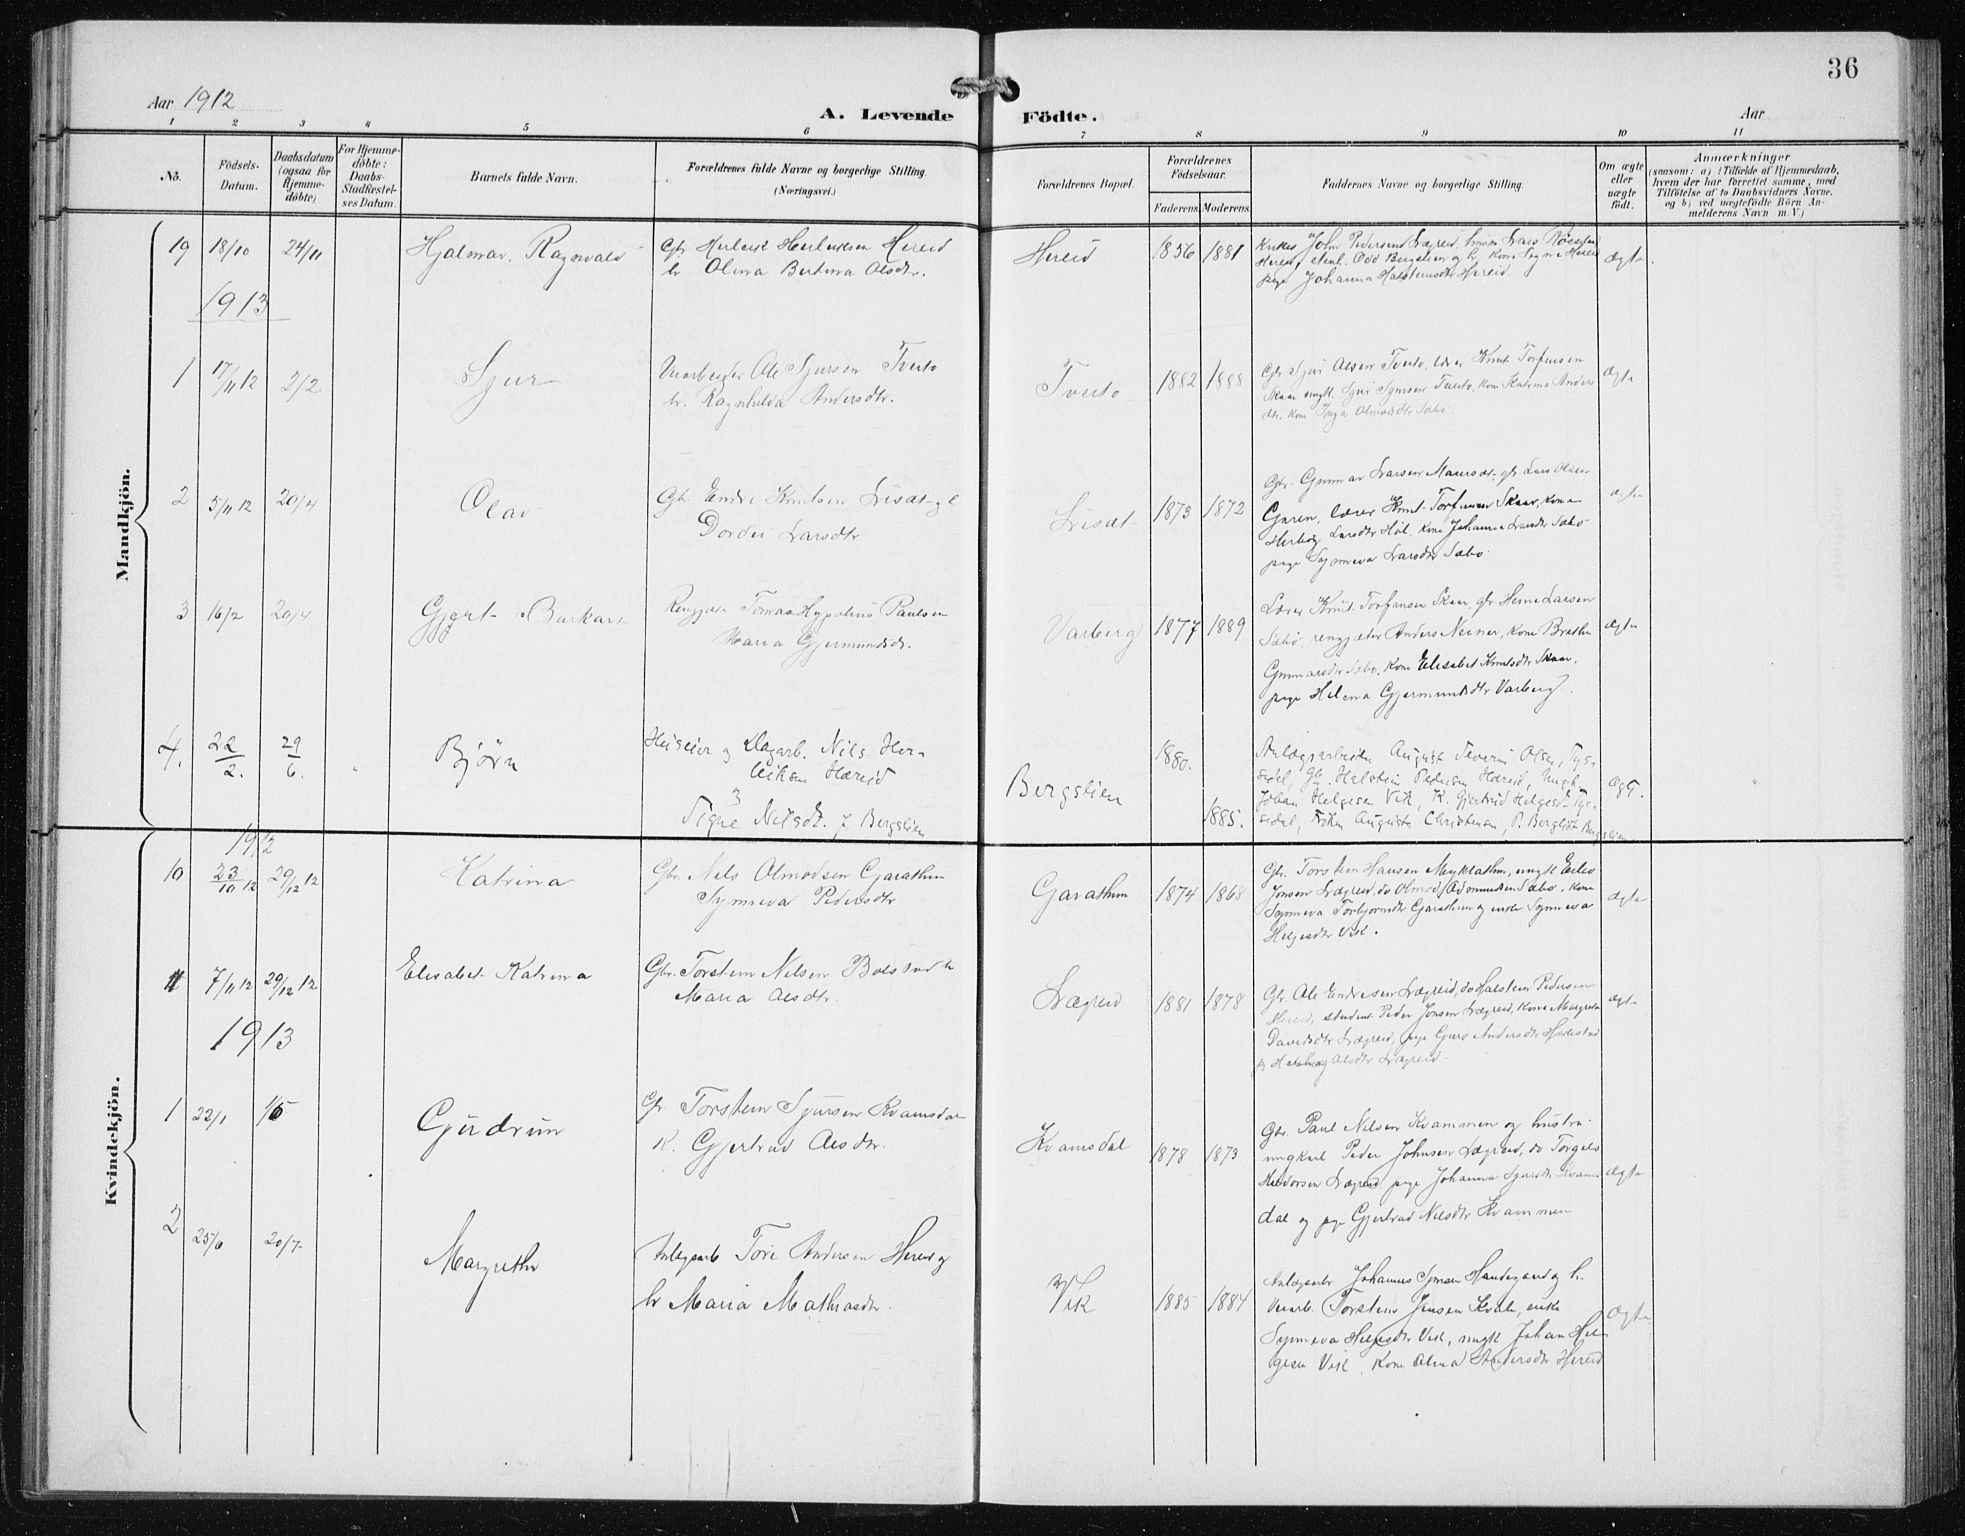 36
Aar 1912
A. Levende
Födte.
Aar
1 2 3 4 5 6 7 8 9 10 11
No.
Födsels-Datum.
Daabsdatum (ogsaa for Hjemme-döbte)
For Hjemme-döbte: Daabs-Stadfæstel-ses Datum.
Barnets fulde Navn.
Forældrenes fulde Navne og borgerlige Stilling.
(Næringsvei.)
Forældrenes Bopæl.
Forældrenes Födselsaar.
Faderens Moderens
Faddernes Navne og borgerlige Stilling.
Om ægte eller uægte födt.
Anmærkninger
(saasom: a) i Tilfælde af Hjemmedaab,
hvem der har forrettet samme, med
Tilföielse af to Daabsvidners Navne.
og b) ved uægtefödte Börn An-
melderens Navn m. V.)
Mandkjön.
19 18/10 24/11 Hjalmar Ragnvald
Gbr Herleik Herleiksen Hereid
hr Olina Bertina Olsdtr.
Hereid 1856 1881
John Pedersen Lægreid, Lars
Hereid, Odd Bergslien og h. kone Signe Hereid
pige Johanna Hereid.
ægte
1913
1 17/11 12 2/2 Sjur
Ole Sjursen Tveito
hr. Ragnhilda Andersdtr.
Tveito 1882 1888
Gbr Sjur Olsen Tveito, lærer Knut Torfinsen
Skaar ungk. Sjur Sjursen Tveito, kone Katrina Anders
dtr. kone Inga Olmodsdtr Sæbø.
ægte
2 5/11 12 20/4 Olav
Gbr. Endre Knutsen Lisæt og
Dordei Larsdtr
Lisæt 1873 1872
Gbr. Gunnar Larsen Maursæt, gbr Lars Olsen
Garen, lærer Knut Torfinsen Skaar, kone
Herborg Larsdtr Høl, kone Johanna Larsdtr Sæbø
pige Synneva Larsdtr Sæbø.
ægte
3 16/2 20/4 Gjert Burkart
Tomas Paulsen
Maria Gjermundsdr.
Varberg 1877 1889
Lærer Knut Torfinsen Skaar, gbr Heine Larsen
Sæbø, Anders Neiner, kone Brita
Gunnarsdtr Sæbø, kone Elisabet Knutsdtr Skaar,
pige Helena Gjermundsdtr Varberg.
ægte
4. 22/2. 29/6. " Bjørn
Huseier og Dagarb. Nils Her-
leiksen Hæreid
Signe Nilsdt. f. Bergslien
Bergslien 1880. 1885.
Anlægsarbeider August Severin Olsen, Tys-
sedal, Gb. Halstein Pedersen Hæreid, Ungk.
Johan Helgesen Vik, K. Gjertrud Helgesdt. Tys-
sedal, Frøken Augusta Christensen, P. Bergliot Bergslien
ægt.
"
Kvindekjön.
1912
10 23/10 12 29/12 12 Katrina
Gbr. Nils Olmodsen Garathun
Synneva Pedersdtr
Garathun 1874 1868
Gbr. Torstein Hansen Myklathun, ungk Eiliv
Jonsen Lægreid, do Olmod Admundsen Sæbø, kone
Synneva Torbjørnsdtr Garathun og enke Synneva
Helgesdtr Vik.
ægte
11 7/11 12 29/12 12 Elisabet Katrina
Gbr. Torstein Nilsen Bolstad h
Maria Olsdtr.
Lægreid 1881 1878
Gbr. Ole Endresen Lægreid, do Halstein Pedersen
Hereid, student Peder Jonsen Lægreid, kone Margreta
Davidsdtr Lægreid, pige Guro Andersdtr
Olsdtr Lægreid.
ægte
1913
1 22/1 1/5 Gudrun
Gbr Torstein Sjursen Kvamsdal
K. Gjertrud Olsdtr.
Kvamsdal 1878 1873
Gbr. Paul Nilsen Kvammen og hustru.
ungkarl Peder Johnsen Lægreid, do Torgels
Lægreid, pige Johanna Sjursdtr Kvams
dal og pige Gjertrud Nilsdtr Kvammen
ægte
2 25/6 20/7 Margretha
Anlegsarb Tore Andersen Hereid og
hr Maria Mathiasdtr.
Vik 1885 1884
Anlægsarb Johannes Sjursen og h.
Torstein Jensen Kvale, enke
Synneva Helgesdtr Vik, ungk Johan Hel-
gesen Vik, Kone Alma Andersdtr Hereid
ægte